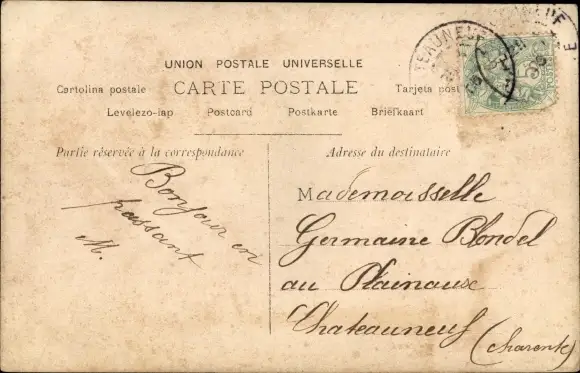 UNION POSTALE UNIVERSELLE
CARTE POSTALE
Cartolina postale
Tarjeta post
Levelezo-lap Postcard Postkarte Briefkaart
Partie réservée à la correspondance
Adresse du destinataire
Bonjour en
passant
M.
Mademoisselle
Germaine Blondel
au Plainaux
Chateauneuf
(Charente)
TEAUNEUF